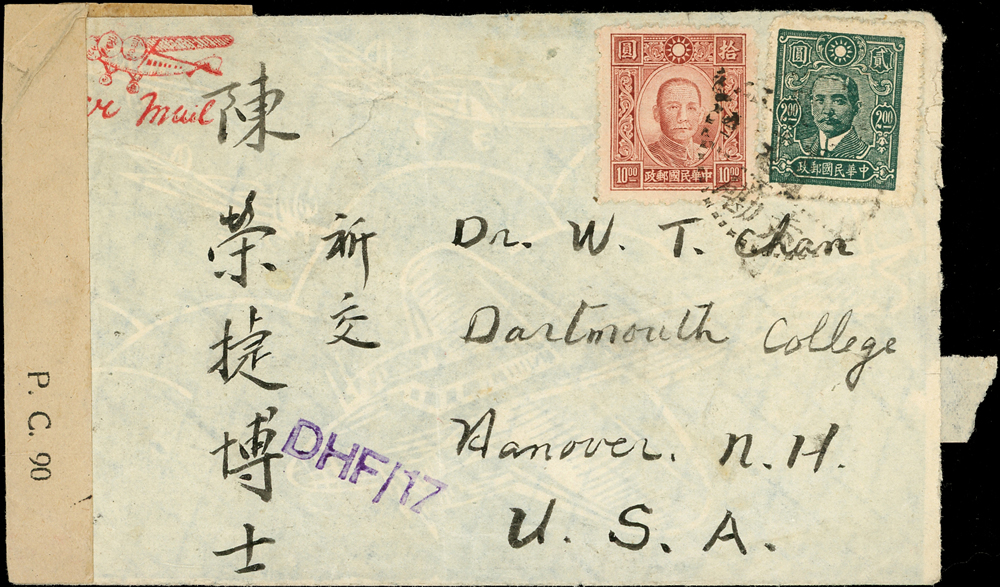 Air Mail
陳榮捷博士
祈交
Dr. W. T. Chan
Dartmouth College
Hanover, N.H.
U. S. A.
DHF/17
P. C. 90
圓 拾
10.00 10.00
政郵國民華中
圓 貳
2.00 2.00
政郵國民華中